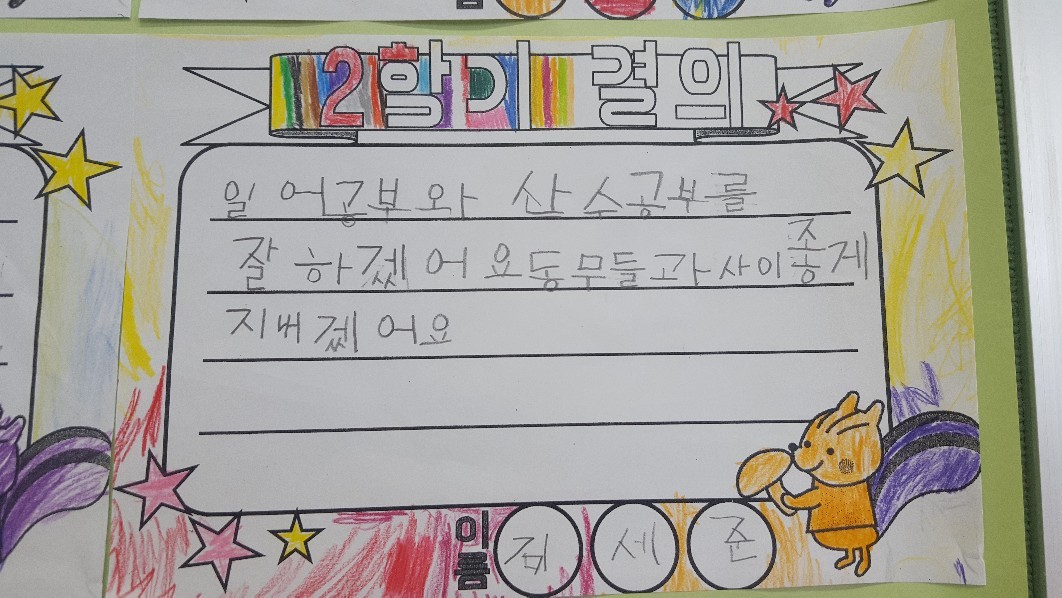 2학기 결의
일 어공부와 산수공부를
잘 하겠어요동무들과사이좋게
지내겠어요
이름 김 세 준